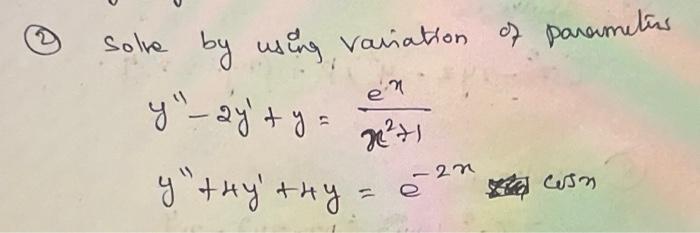 ② Solve by using variation of parameters
y'' - 2y' + y = e^x / (x^2 + 1)
y'' + 4y' + 4y = e^{-2x} cosx